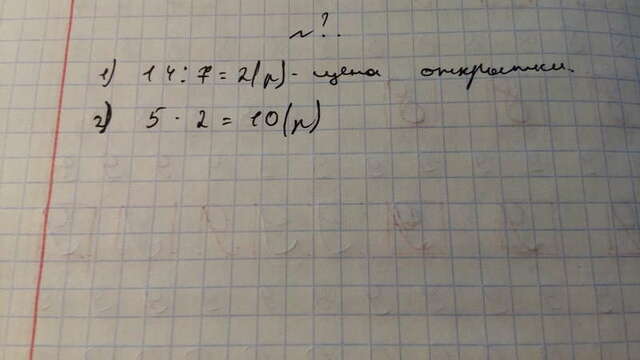 ~?.
1) 14:7=2(р)- цена открытки.
2) 5·2=10(р)